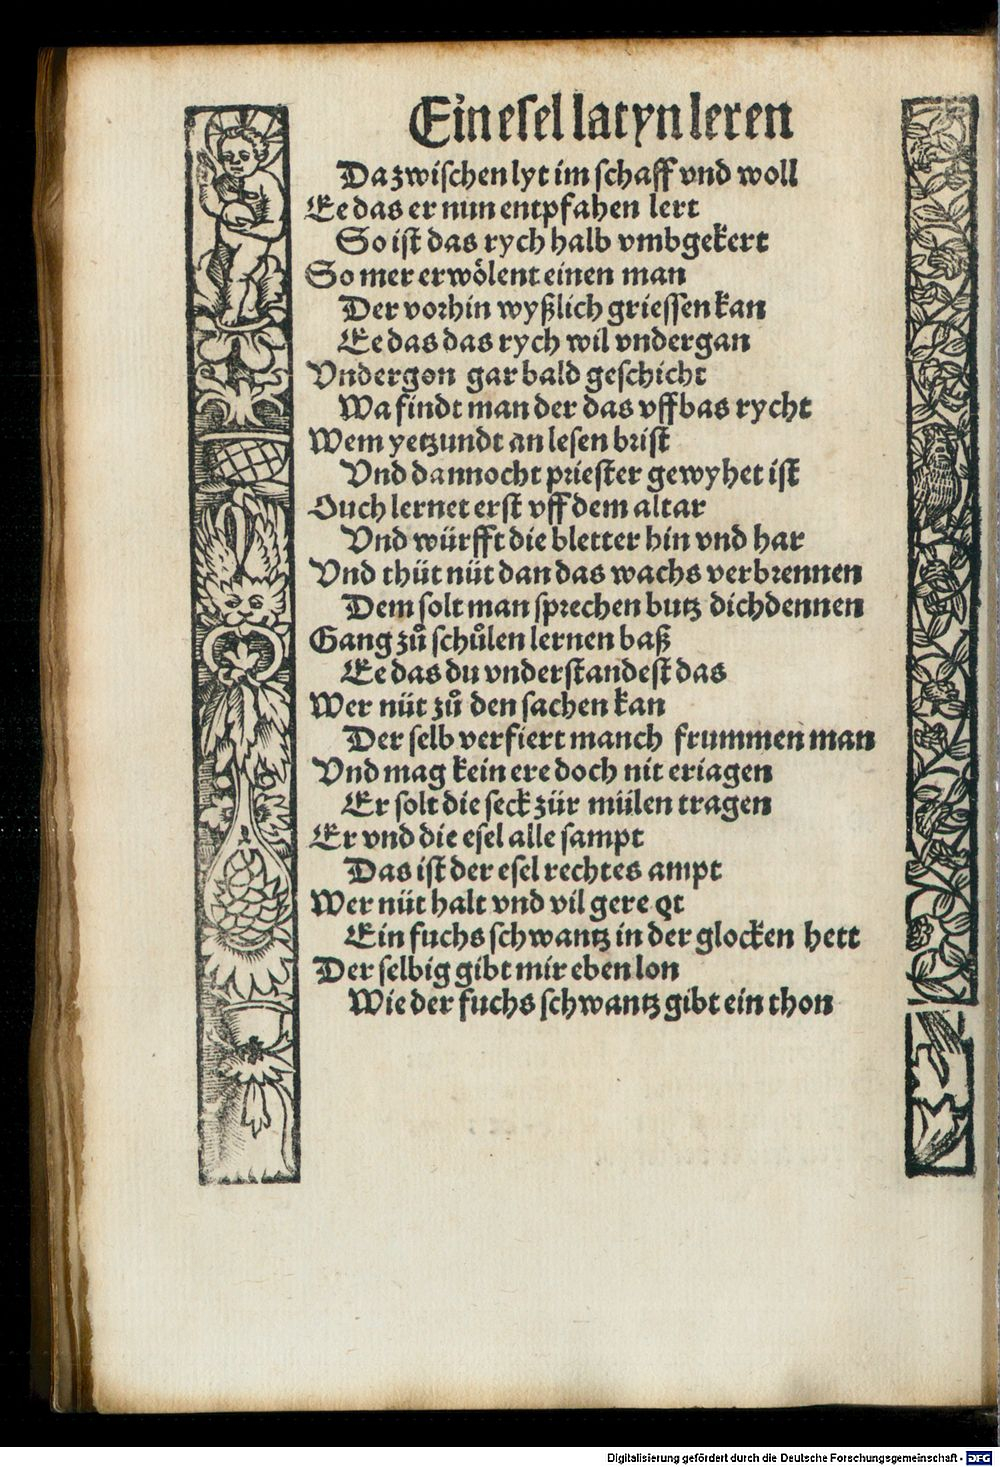 Ein esel latyn leren
Da zwischen lyt im schaff vnd woll
Ee das er nun entpfahen lert
So ist das rych halb vmbgekert
So mer erwoͤlent einen man
Der vorhin wyßlich griessen kan
Ee das das rych wil vndergan
Vndergon gar bald geschicht
Wa findt man der das vff bas rycht
Wem yetzundt an lesen brist
Vnd dannocht priester gewyhet ist
Ouch lernet erst vff dem altar
Vnd würfft die bletter hin vnd har
Vnd thüt nüt dan das wachs verbrennen
Dem solt man sprechen butz dich dennen
Gang zuͦ schuͦlen lernen baß
Ee das du vnderstandest das
Wer nüt zuͦ den sachen kan
Der selb verfiert manch frummen man
Vnd mag kein ere doch nit eriagen
Er solt die seck zür mülen tragen
Er vnd die esel alle sampt
Das ist der esel rechtes ampt
Wer nüt halt vnd vil geret
Ein fuchs schwantz in der glocken hett
Der selbig gibt mir eben lon
Wie der fuchs schwantz gibt ein thon
Digitalisierung gefördert durch die Deutsche Forschungsgemeinschaft - DFG